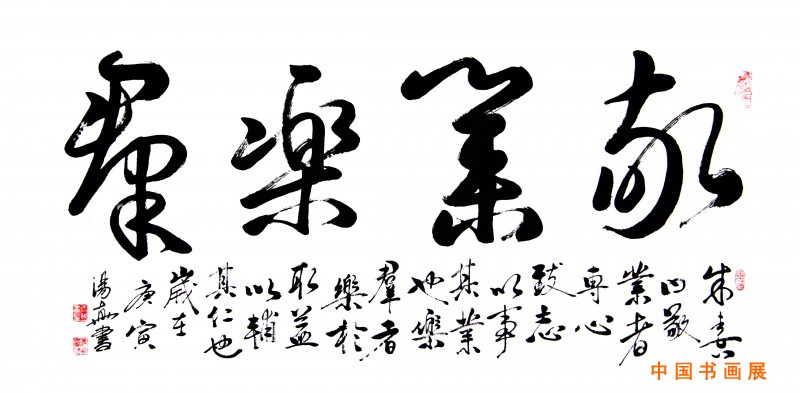 敬業樂群
朱熹
曰敬
業者
專心
致志
以事
其業
也樂
羣者
樂於
取益
以輔
其仁也
歲在
庚寅
書
中国书画展